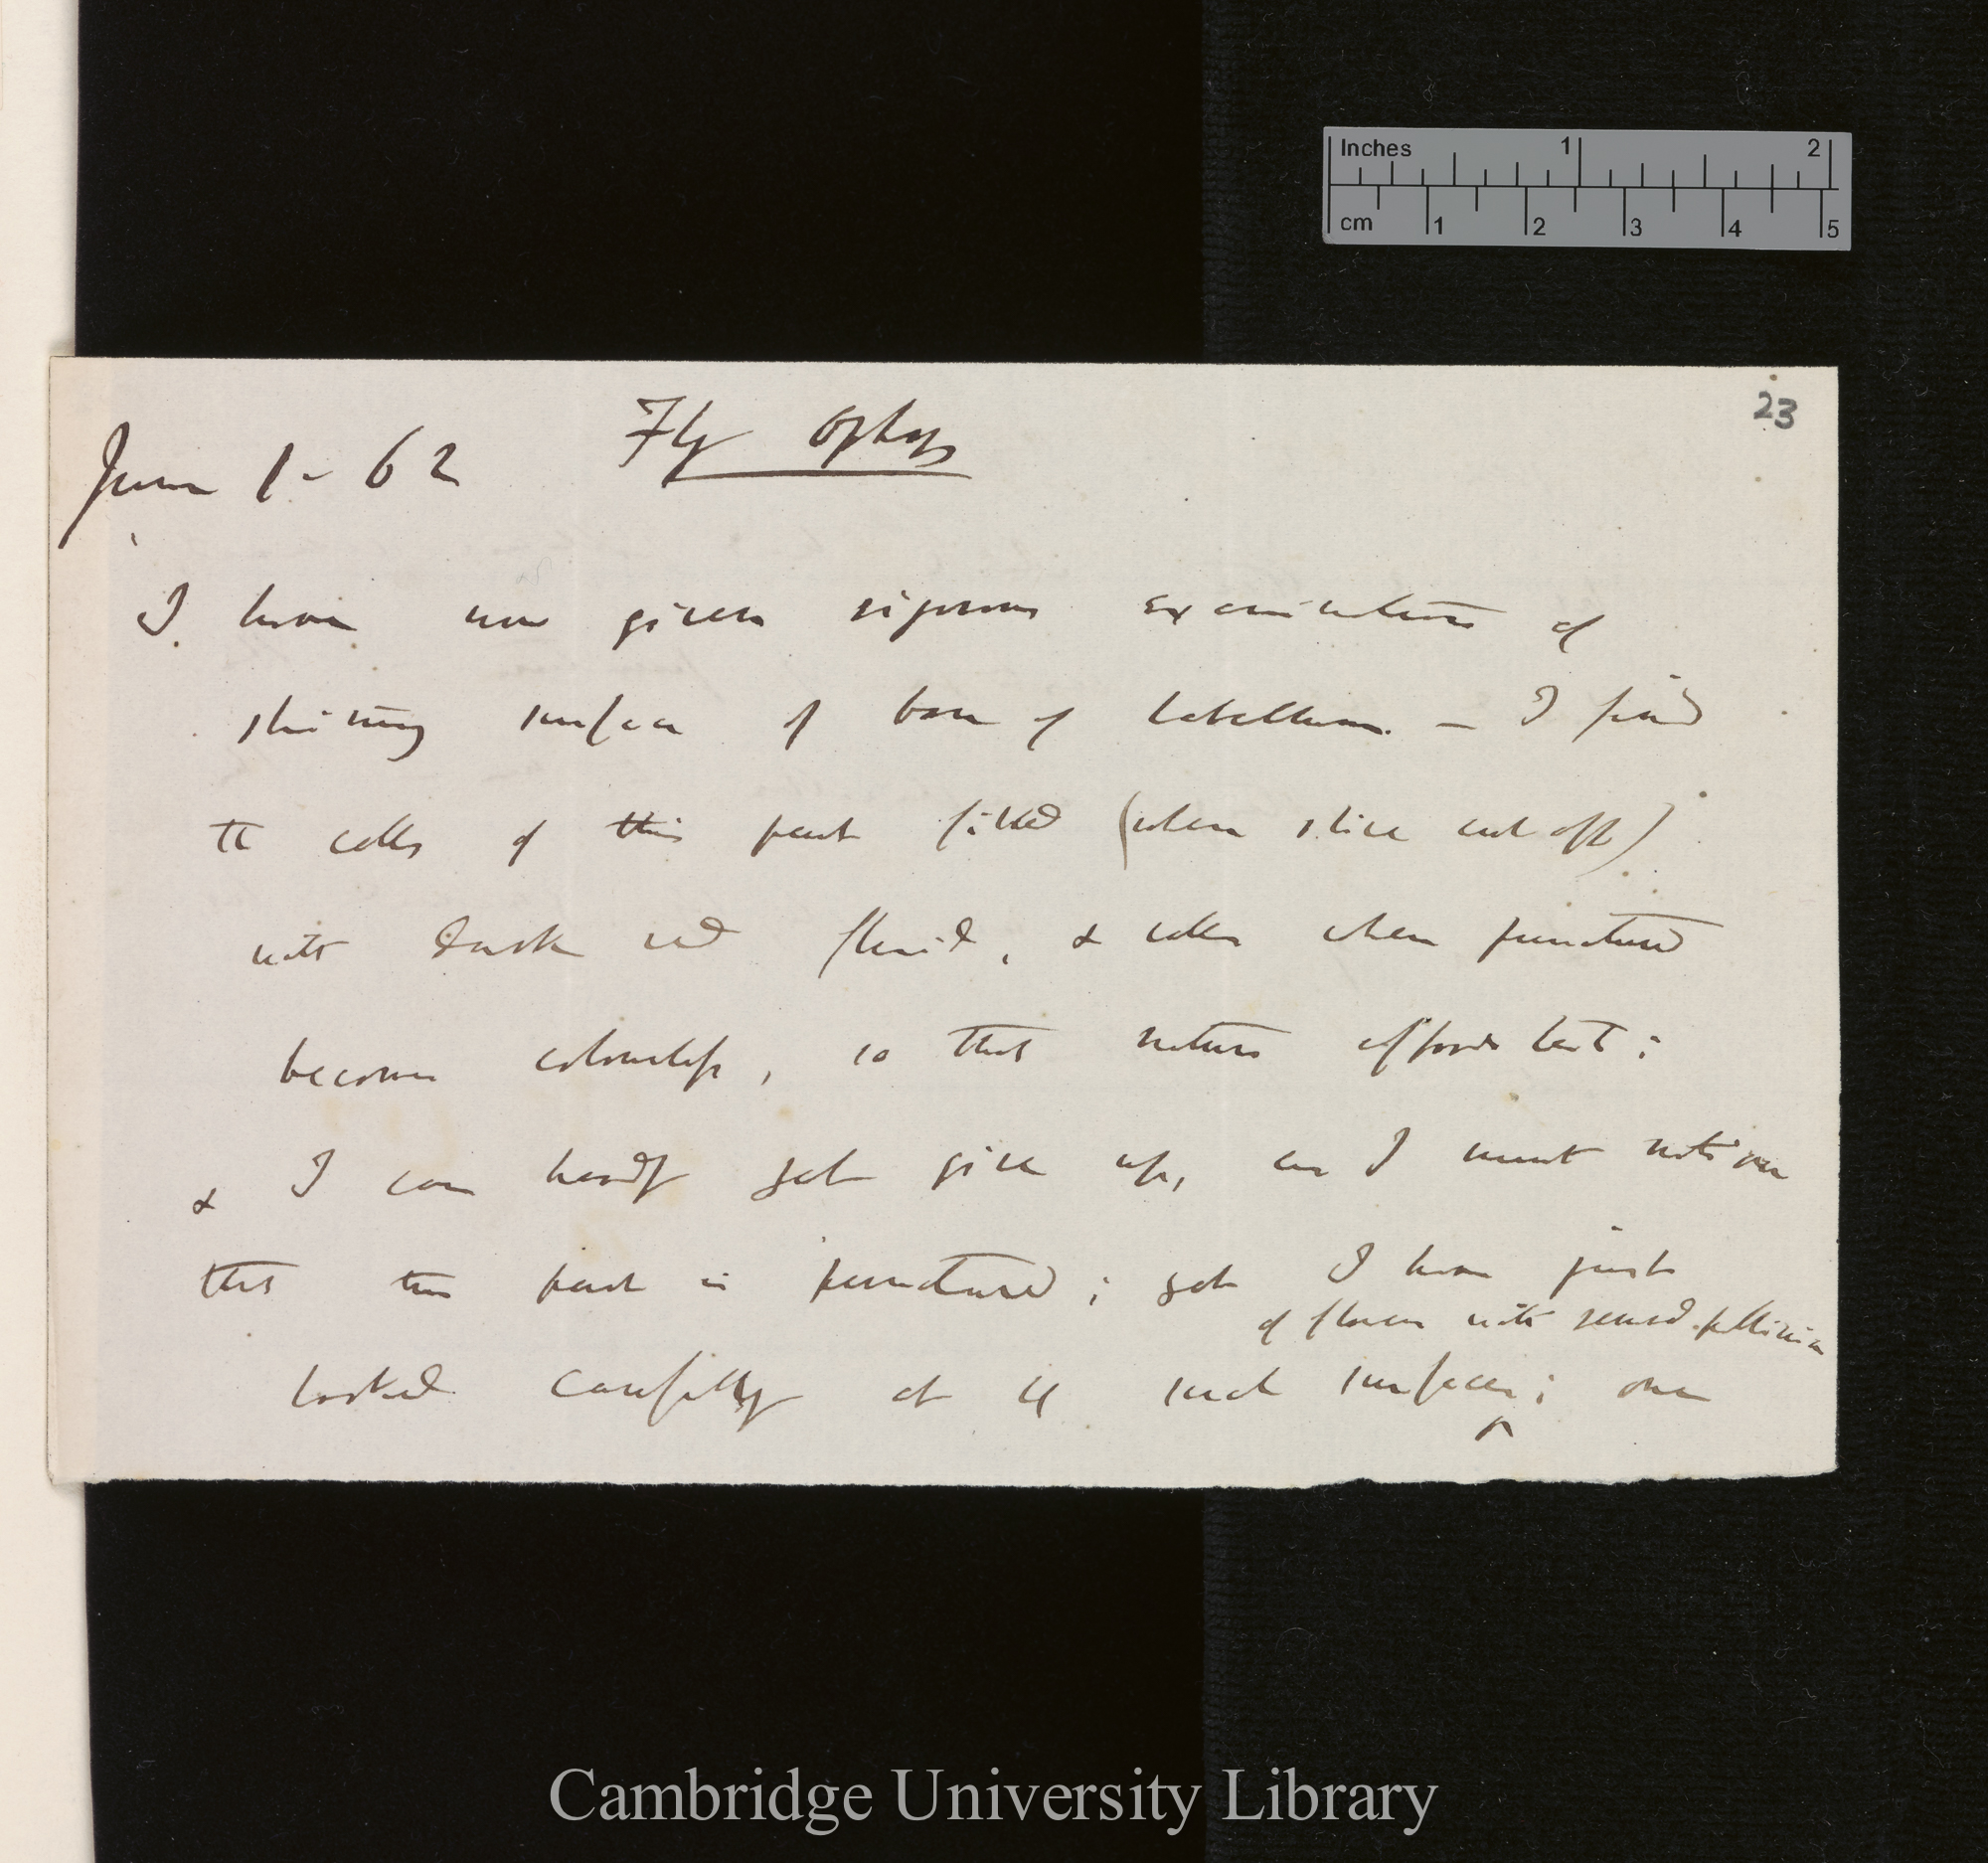 Inches 1 2
cm 1 2 3 4 5
23
Fly Ophrys
June 1 – 62
I have now given rigorous examination of
shining surface of base of labellum. — I find
the cells of this part filled (when slice cut off)
with dark red fluid, & cells when punctured
become colourless, so that nature affords test;
& I can hardly yet give up, as I must notion
that this part is punctured; yet I have just
of flower with removed pollinia
looked carefully at 4 such surfaces; one
^
Cambridge University Library